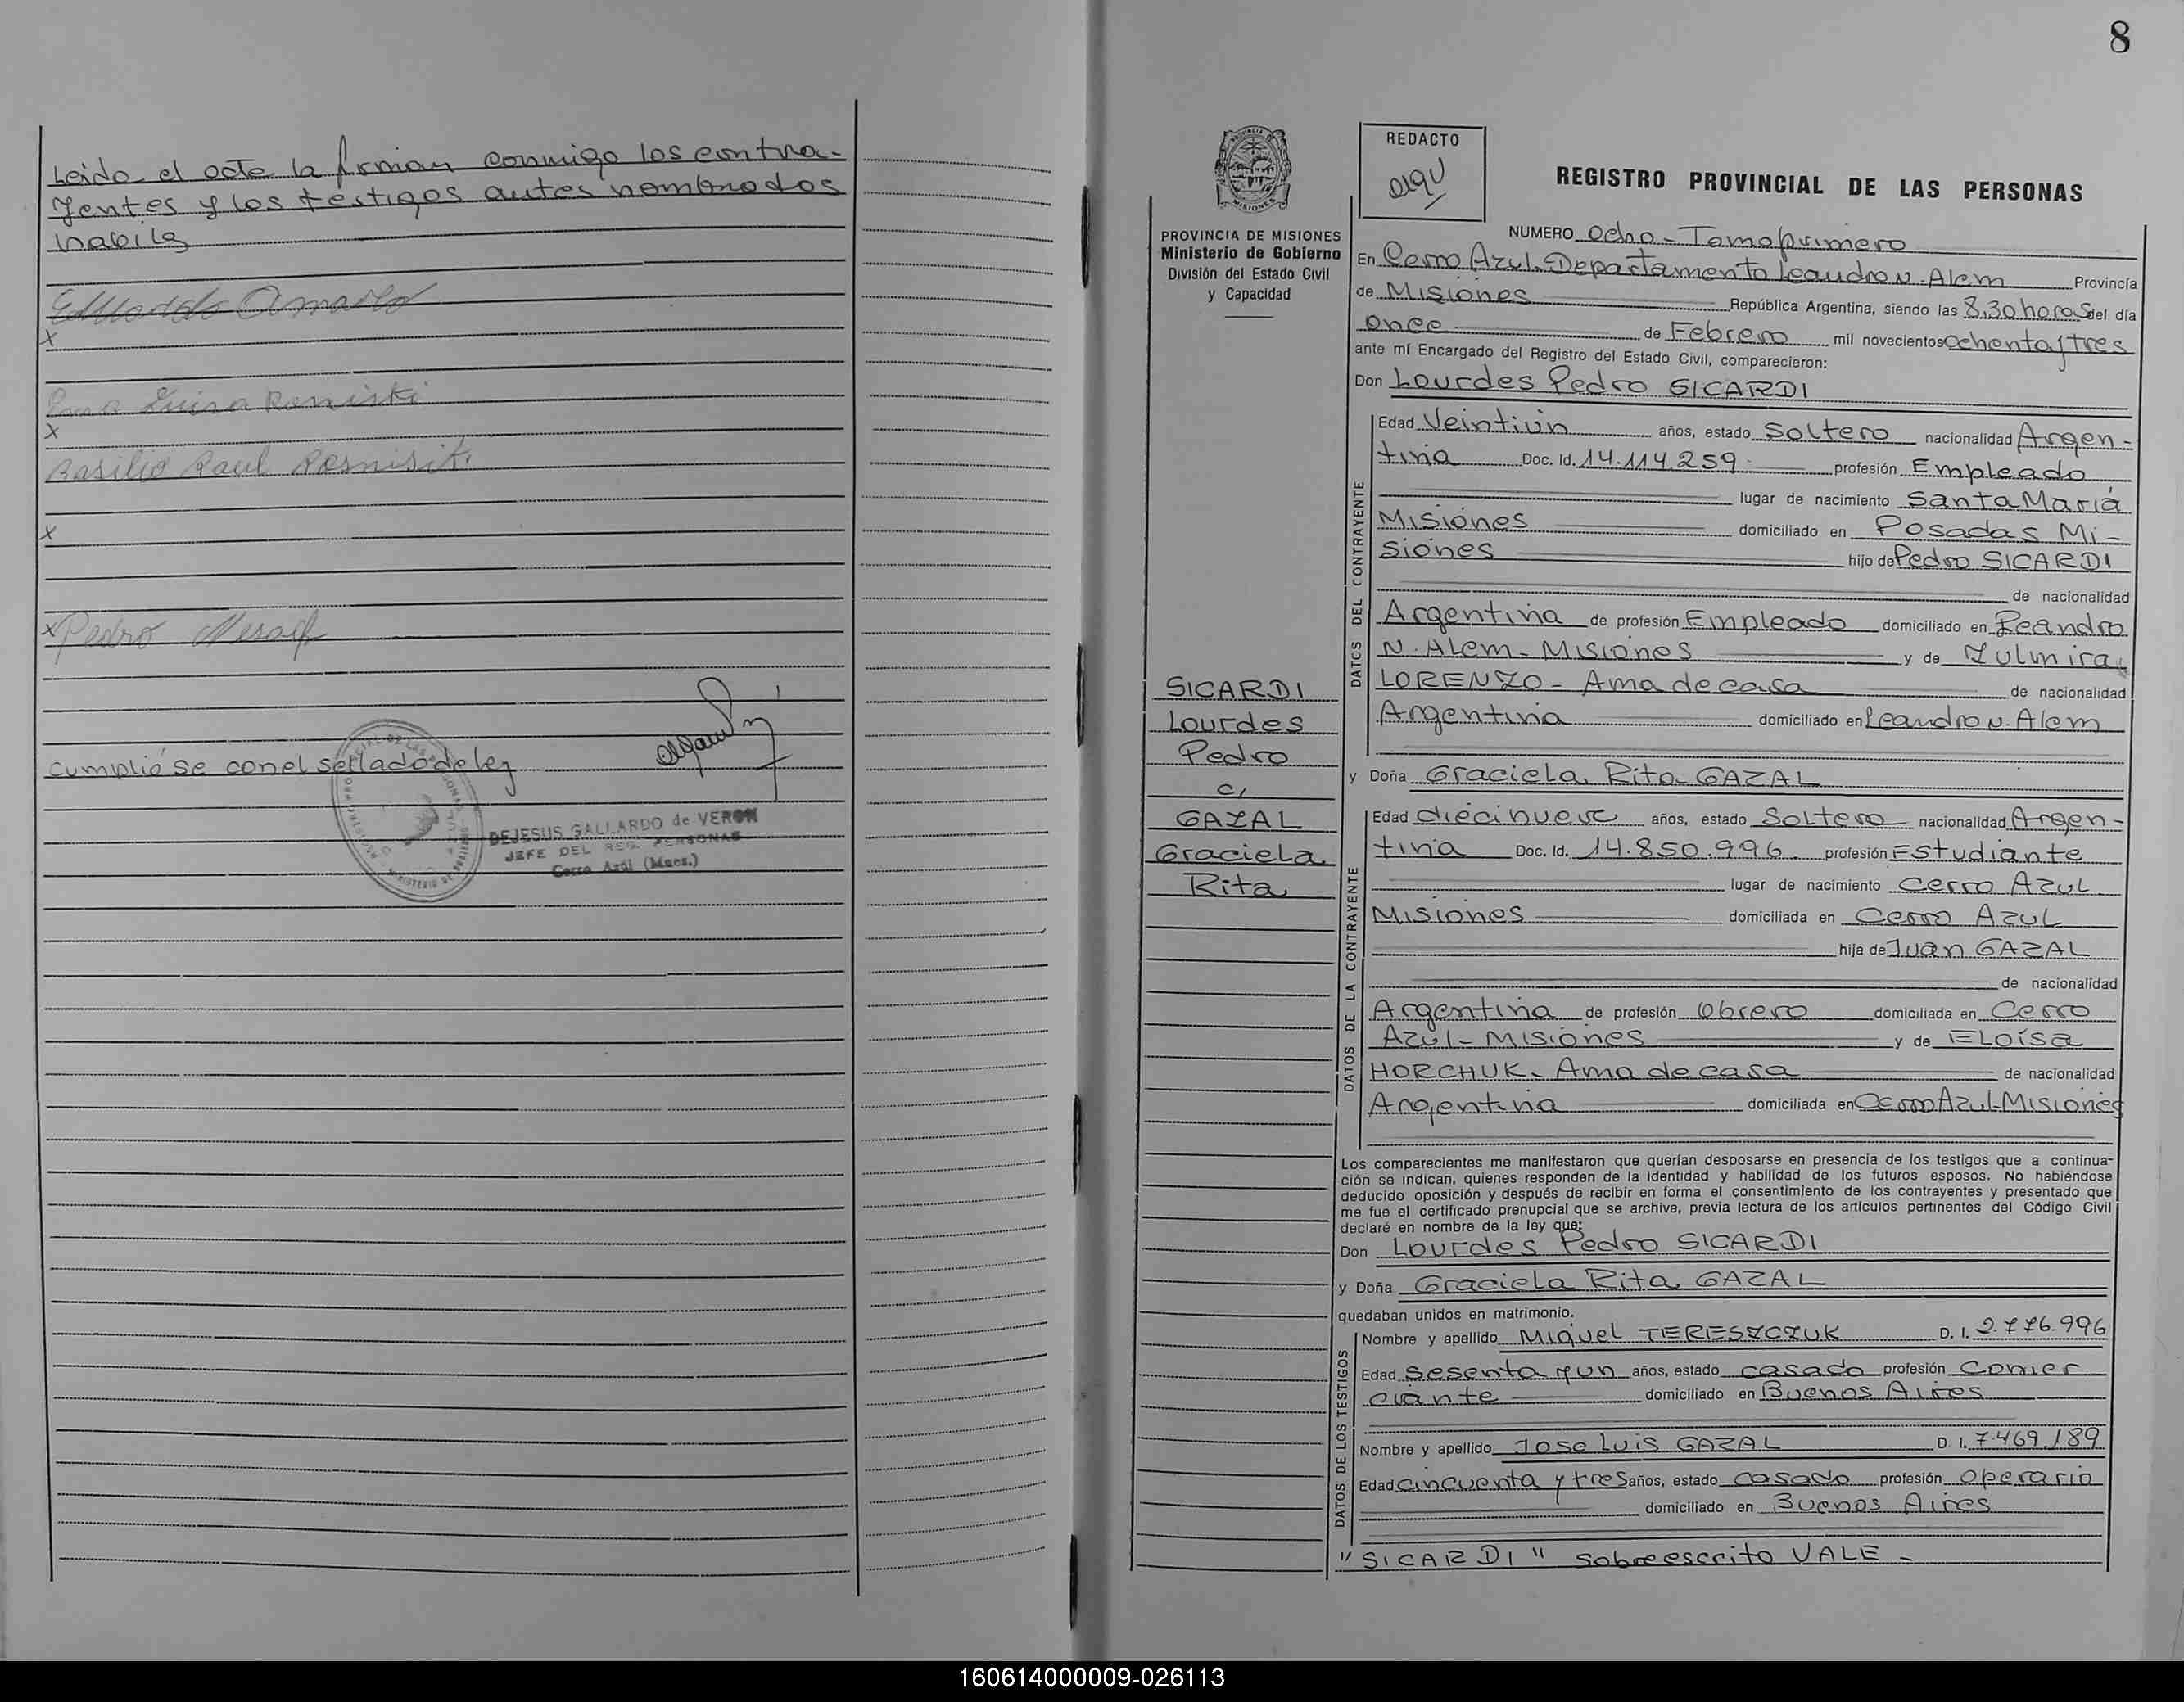 Leido el acta la firman conmigo los contra-
yentes y los testigos antes nombrados
habiles
Eduardo Amaro
x
Luisa
x
Basilio Raul
x
x Pedro
Cumplió se con el sellado de ley
DEJESUS GALLARDO de VERON
JEFE DEL REG. PERSONAS
Cerro Azul (Mnes.)
8
REDACTO
PROVINCIA DE MISIONES
Ministerio de Gobierno
División del Estado Civil
y Capacidad
SICARDI
Lourdes
Pedro
c/
GAZAL
Graciela
Rita
REGISTRO PROVINCIAL DE LAS PERSONAS
NUMERO Ocho - Tomo primero
En Cerro Azul - Departamento Leandro N. Alem Provincia
de Misiones República Argentina, siendo las 8,30 horas del día
once de Febrero mil novecientos ochenta y tres
ante mí Encargado del Registro del Estado Civil, comparecieron:
Don Lourdes Pedro SICARDI
DATOS DEL CONTRAYENTE
Edad Veintiún años, estado Soltero nacionalidad Argen-
tina Doc. Id. 14.114.259 profesión Empleado
lugar de nacimiento Santa María
Misiones domiciliado en Posadas Mi-
siones hijo de Pedro SICARDI
de nacionalidad
Argentina de profesión Empleado domiciliado en Leandro
N. Alem - Misiones y de Zulmira
LORENZO - Ama de casa de nacionalidad
Argentina domiciliado en Leandro N. Alem
y Doña Graciela Rita GAZAL
DATOS DE LA CONTRAYENTE
Edad diecinueve años, estado Soltera nacionalidad Argen-
tina Doc. Id. 14.850.996 profesión Estudiante
lugar de nacimiento Cerro Azul
Misiones domiciliada en Cerro Azul
hija de Juan GAZAL
de nacionalidad
Argentina de profesión Obrero domiciliada en Cerro
Azul - Misiones y de Eloísa
HORCHUK - Ama de casa de nacionalidad
Argentina domiciliada en Cerro Azul - Misiones
Los comparecientes me manifestaron que querían desposarse en presencia de los testigos que a continua-
ción se indican, quienes responden de la identidad y habilidad de los futuros esposos. No habiéndose
deducido oposición y después de recibir en forma el consentimiento de los contrayentes y presentado que
me fue el certificado prenupcial que se archiva, previa lectura de los artículos pertinentes del Código Civil
declaré en nombre de la ley que:
Don Lourdes Pedro SICARDI
y Doña Graciela Rita GAZAL
quedaban unidos en matrimonio.
DATOS DE LOS TESTIGOS
Nombre y apellido Miguel TERESZCZUK D. I. 2.776.996
Edad sesenta y un años, estado casado profesión Comer
ciante domiciliado en Buenos Aires
Nombre y apellido Jose Luis GAZAL D. I. 7.469.189
Edad cincuenta y tres años, estado casado profesión Operario
domiciliado en Buenos Aires
"SICARDI" sobreescrito VALE -
160614000009-026113